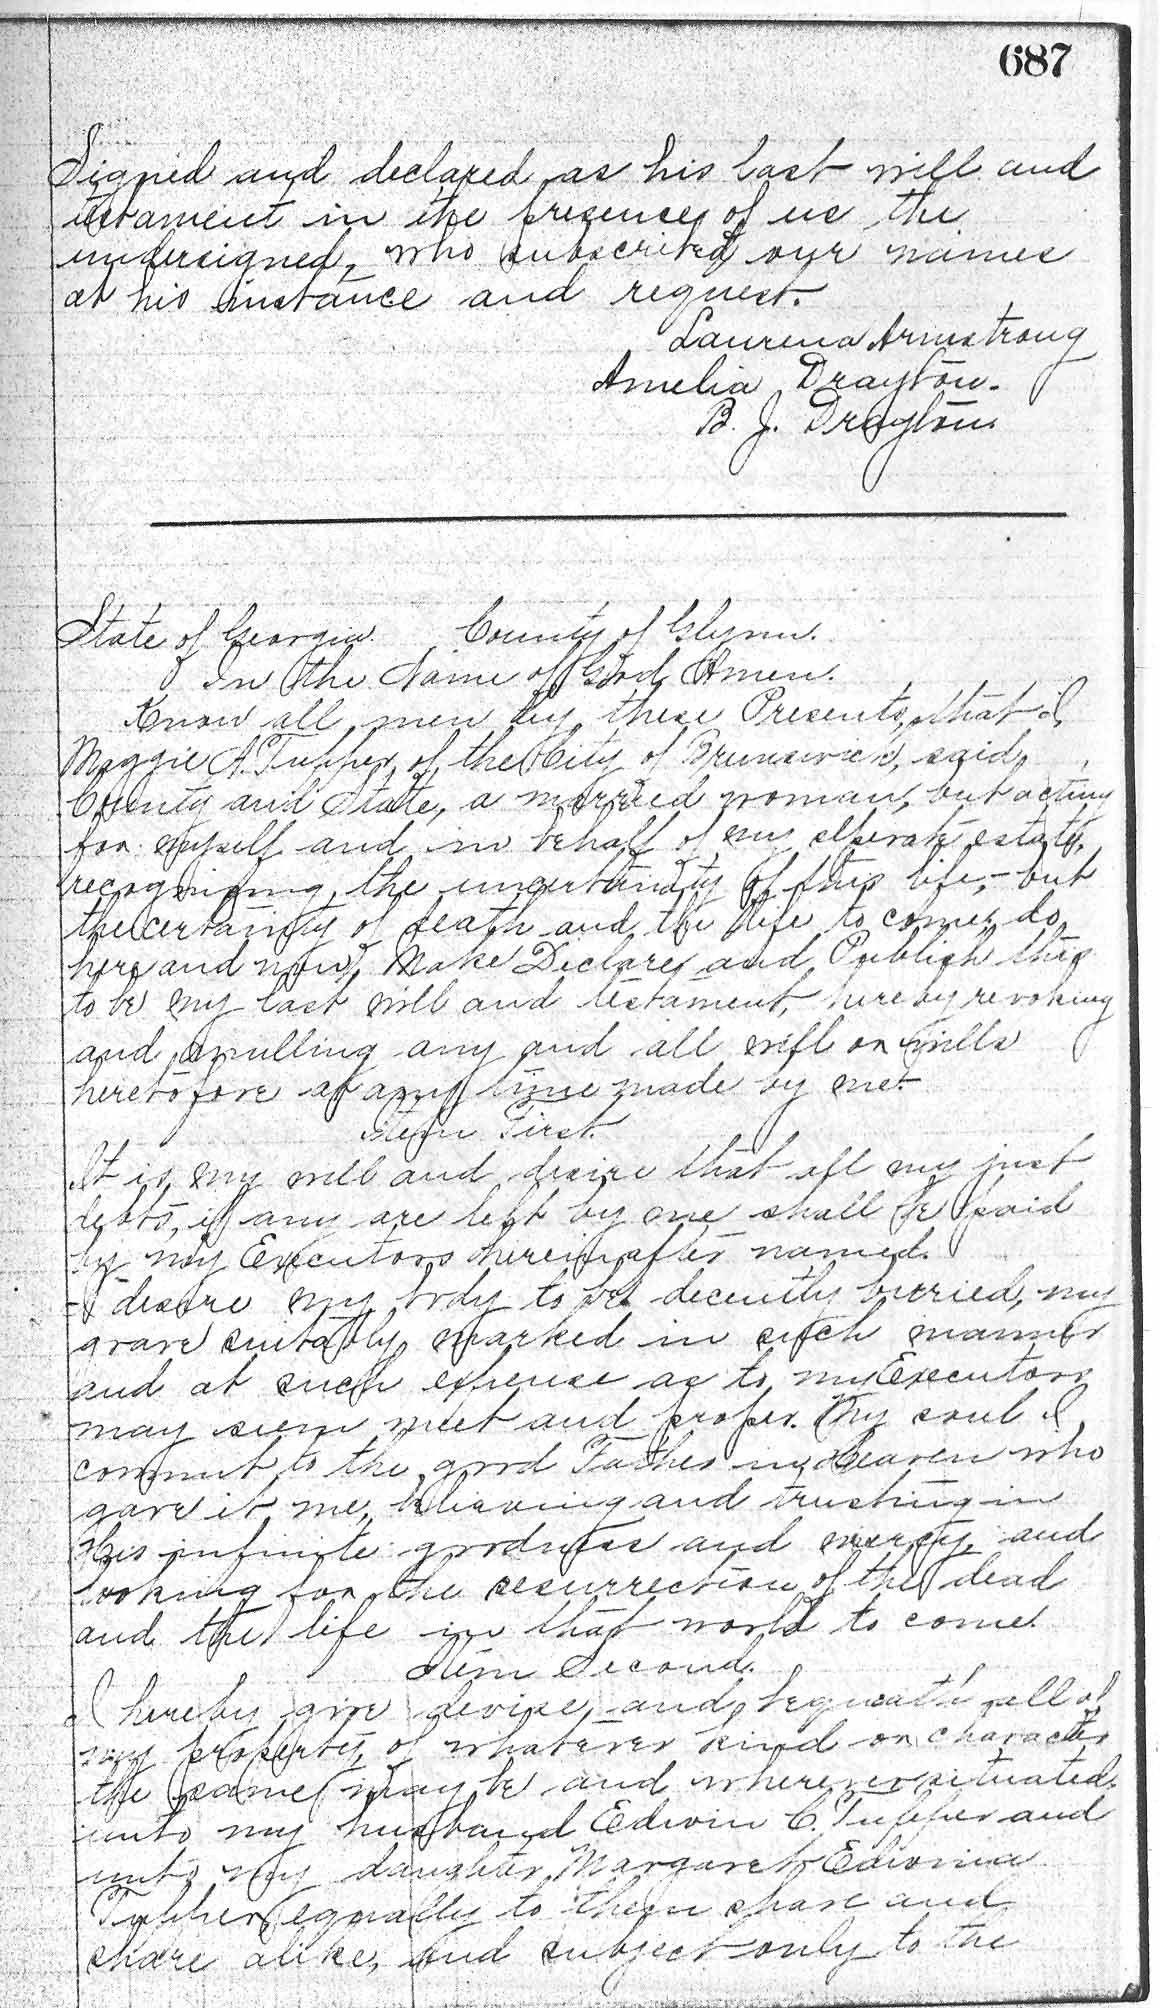 687
Signed and declared as his last will and
testament in the presence of us the
undersigned, who subscribed our names
at his instance and request.
Laurena Armstrong
Amelia Drayton.
B. J. Drayton.
State of Georgia. County of Glynn.
In the Name of God Amen.
Know all men by these Presents, that I,
Maggie A. Tupper, of the City of Brunswick, said
County and State, a married woman, but acting
for myself and in behalf of my seperate estate,
recognizing the uncertainty of this life, - but
the certainty of death and the life to come, do,
here and now, Make Declare and Publish this
to be my last will and testament, hereby revoking
and anulling any and all will or wills
heretofore at any time made by me.
Item First.
It is my will and desire that all my just
debts, if any are left by me shall be paid
by my Executors hereinafter named.
I desire my body to be decently burried, my
grave suitably marked in such manner
and at such expense as to my Executors
may seem meet and proper. My soul I
commit to the good Father in Heaven who
gave it me, believing and trusting in
His infinite goodness and mercy, and
looking for the resurrection of the dead
and the life in that world to come.
Item Second.
I hereby give devise and bequeath all of
my property, of whatever kind or character
the same may be and wherever situated,
unto my husband Edwin C. Tupper and
unto my daughter, Margaret Edwina
Tupper equally to them share and
share alike, and subject only to the